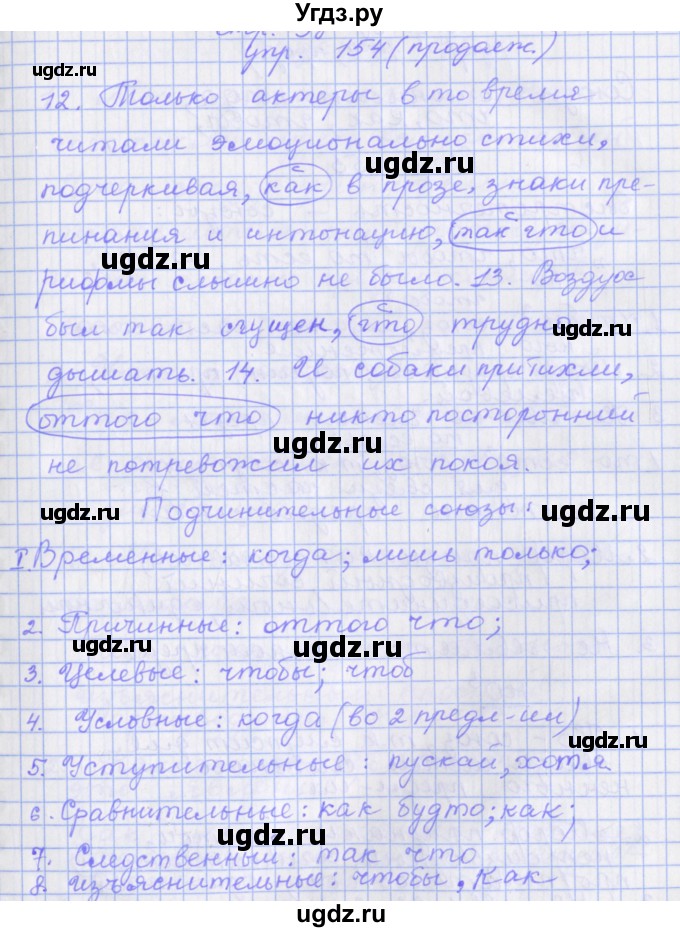 Угдз.ру
упр. 154 (продолж.)
12. Только актеры в то время
читали эмоционально стихи,
подчеркивая, как в прозе, знаки пре-
пинания и интонацию, так что и
рифмы слышно не было. 13. Воздух
был так сгущен, что трудно
дышать. 14. И собаки притихли,
оттого что никто посторонний
не потревожил их покоя.
Подчинительные союзы:
I. Временные: когда; лишь только;
2. Причинные: оттого что;
3. Целевые: чтобы; чтоб
4. Условные: когда (во 2 предл-ии)
5. Уступительные: пускай, хотя
6. Сравнительные: как будто; как;
7. Следственный: так что
8. изъяснительные: чтобы, как
ugdz.ru
ugdz.ru
ugdz.ru
ugdz.ru
ugdz.ru
ugdz.ru
ugdz.ru
ugdz.ru
ugdz.ru
ugdz.ru
ugdz.ru
ugdz.ru
ugdz.ru
ugdz.ru